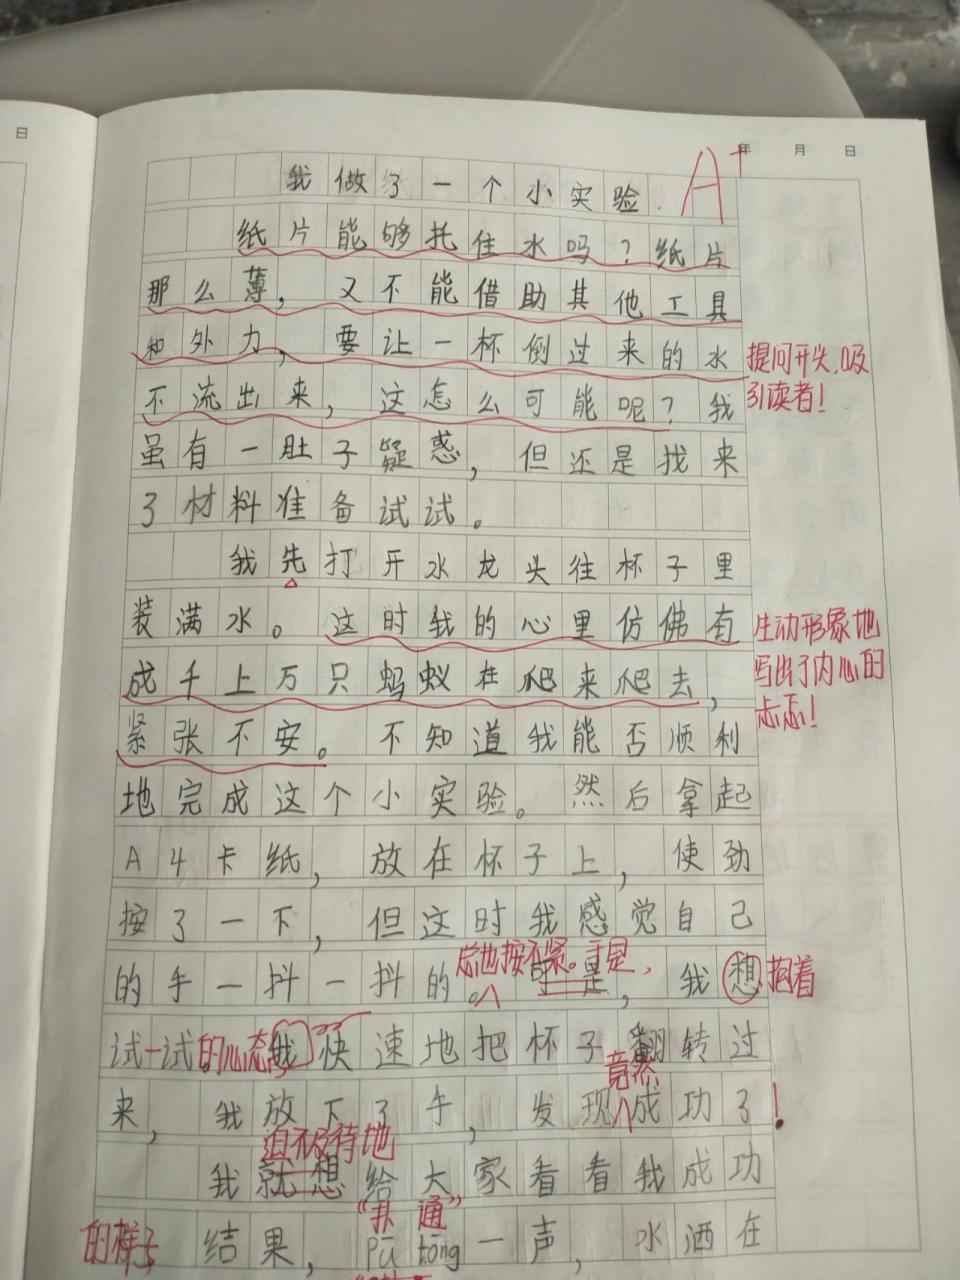 日
年 月 日
我做了一个小实验.
A+
纸片能够托住水吗?纸片
那么薄,又不能借助其他工具
和外力,要让一杯倒过来的水
不流出来,这怎么可能呢?我
提问开头,吸
引读者!
虽有一肚子疑惑,但还是找来
了材料准备试试。
我先打开水龙头往杯子里
装满水。这时我的心里仿佛有
成千上万只蚂蚁在爬来爬去,
紧张不安。不知道我能否顺利
生动形象地
写出了内心的
忐忑!
地完成这个小实验。然后拿起
A4卡纸,放在杯子上,使劲
按了一下,但这时我感觉自己
总也按不紧。于是,
的手一抖一抖的。可是,我想抱着
试一试的心态我快速地把杯子翻转过
竟然
来,我放下了手,发现成功了!
迫不及待地
我就想给大家看看我成功
“扑通”
的样子,结果,pū tōng一声,水洒在